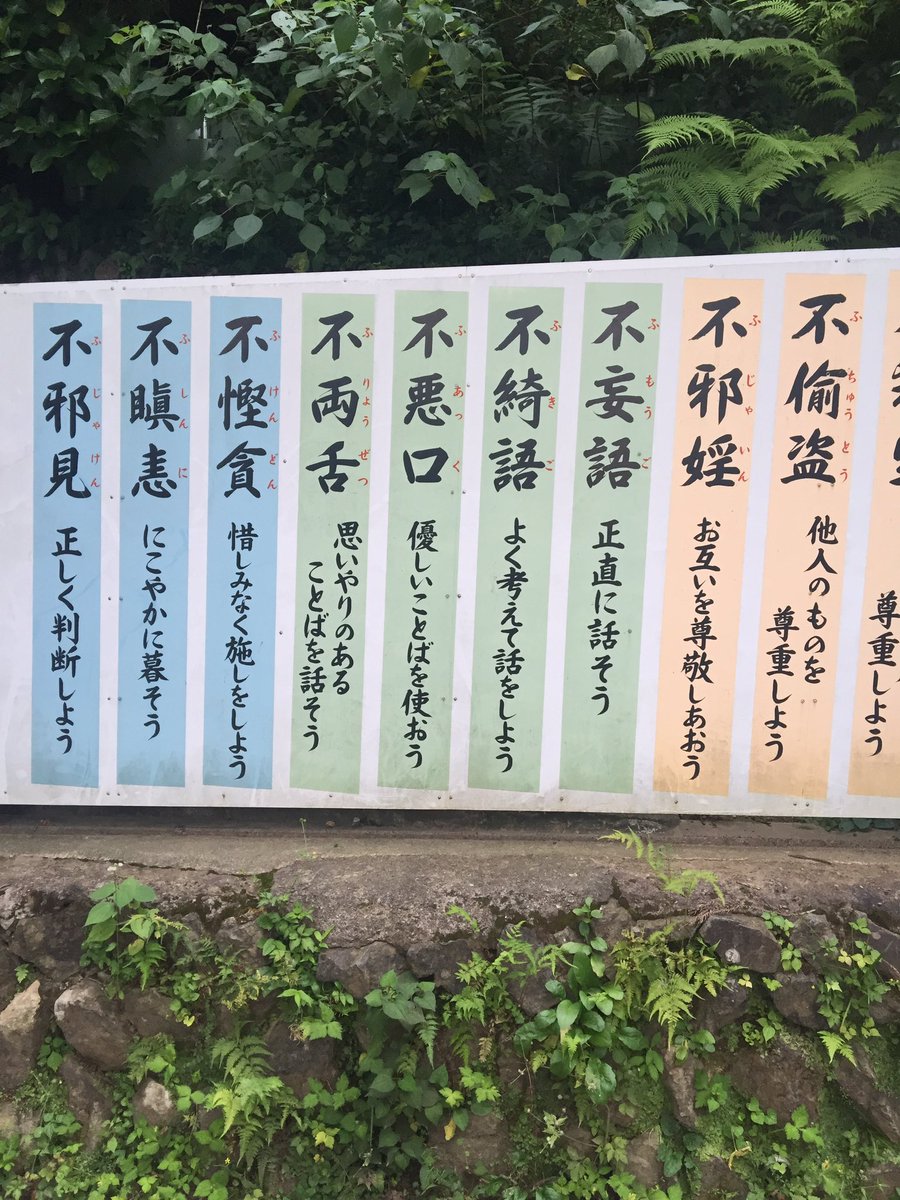 尊重しよう
不偸盗
ふちゅうとう
他人のものを
尊重しよう
不邪婬
ふじゃいん
お互いを尊敬しあおう
不妄語
ふもうご
正直に話そう
不綺語
ふきご
よく考えて話をしよう
不悪口
ふあっく
優しいことばを使おう
不両舌
ふりょうぜつ
思いやりのある
ことばを話そう
不慳貪
ふけんどん
惜しみなく施しをしよう
不瞋恚
ふしんに
にこやかに暮そう
不邪見
ふじゃけん
正しく判断しよう